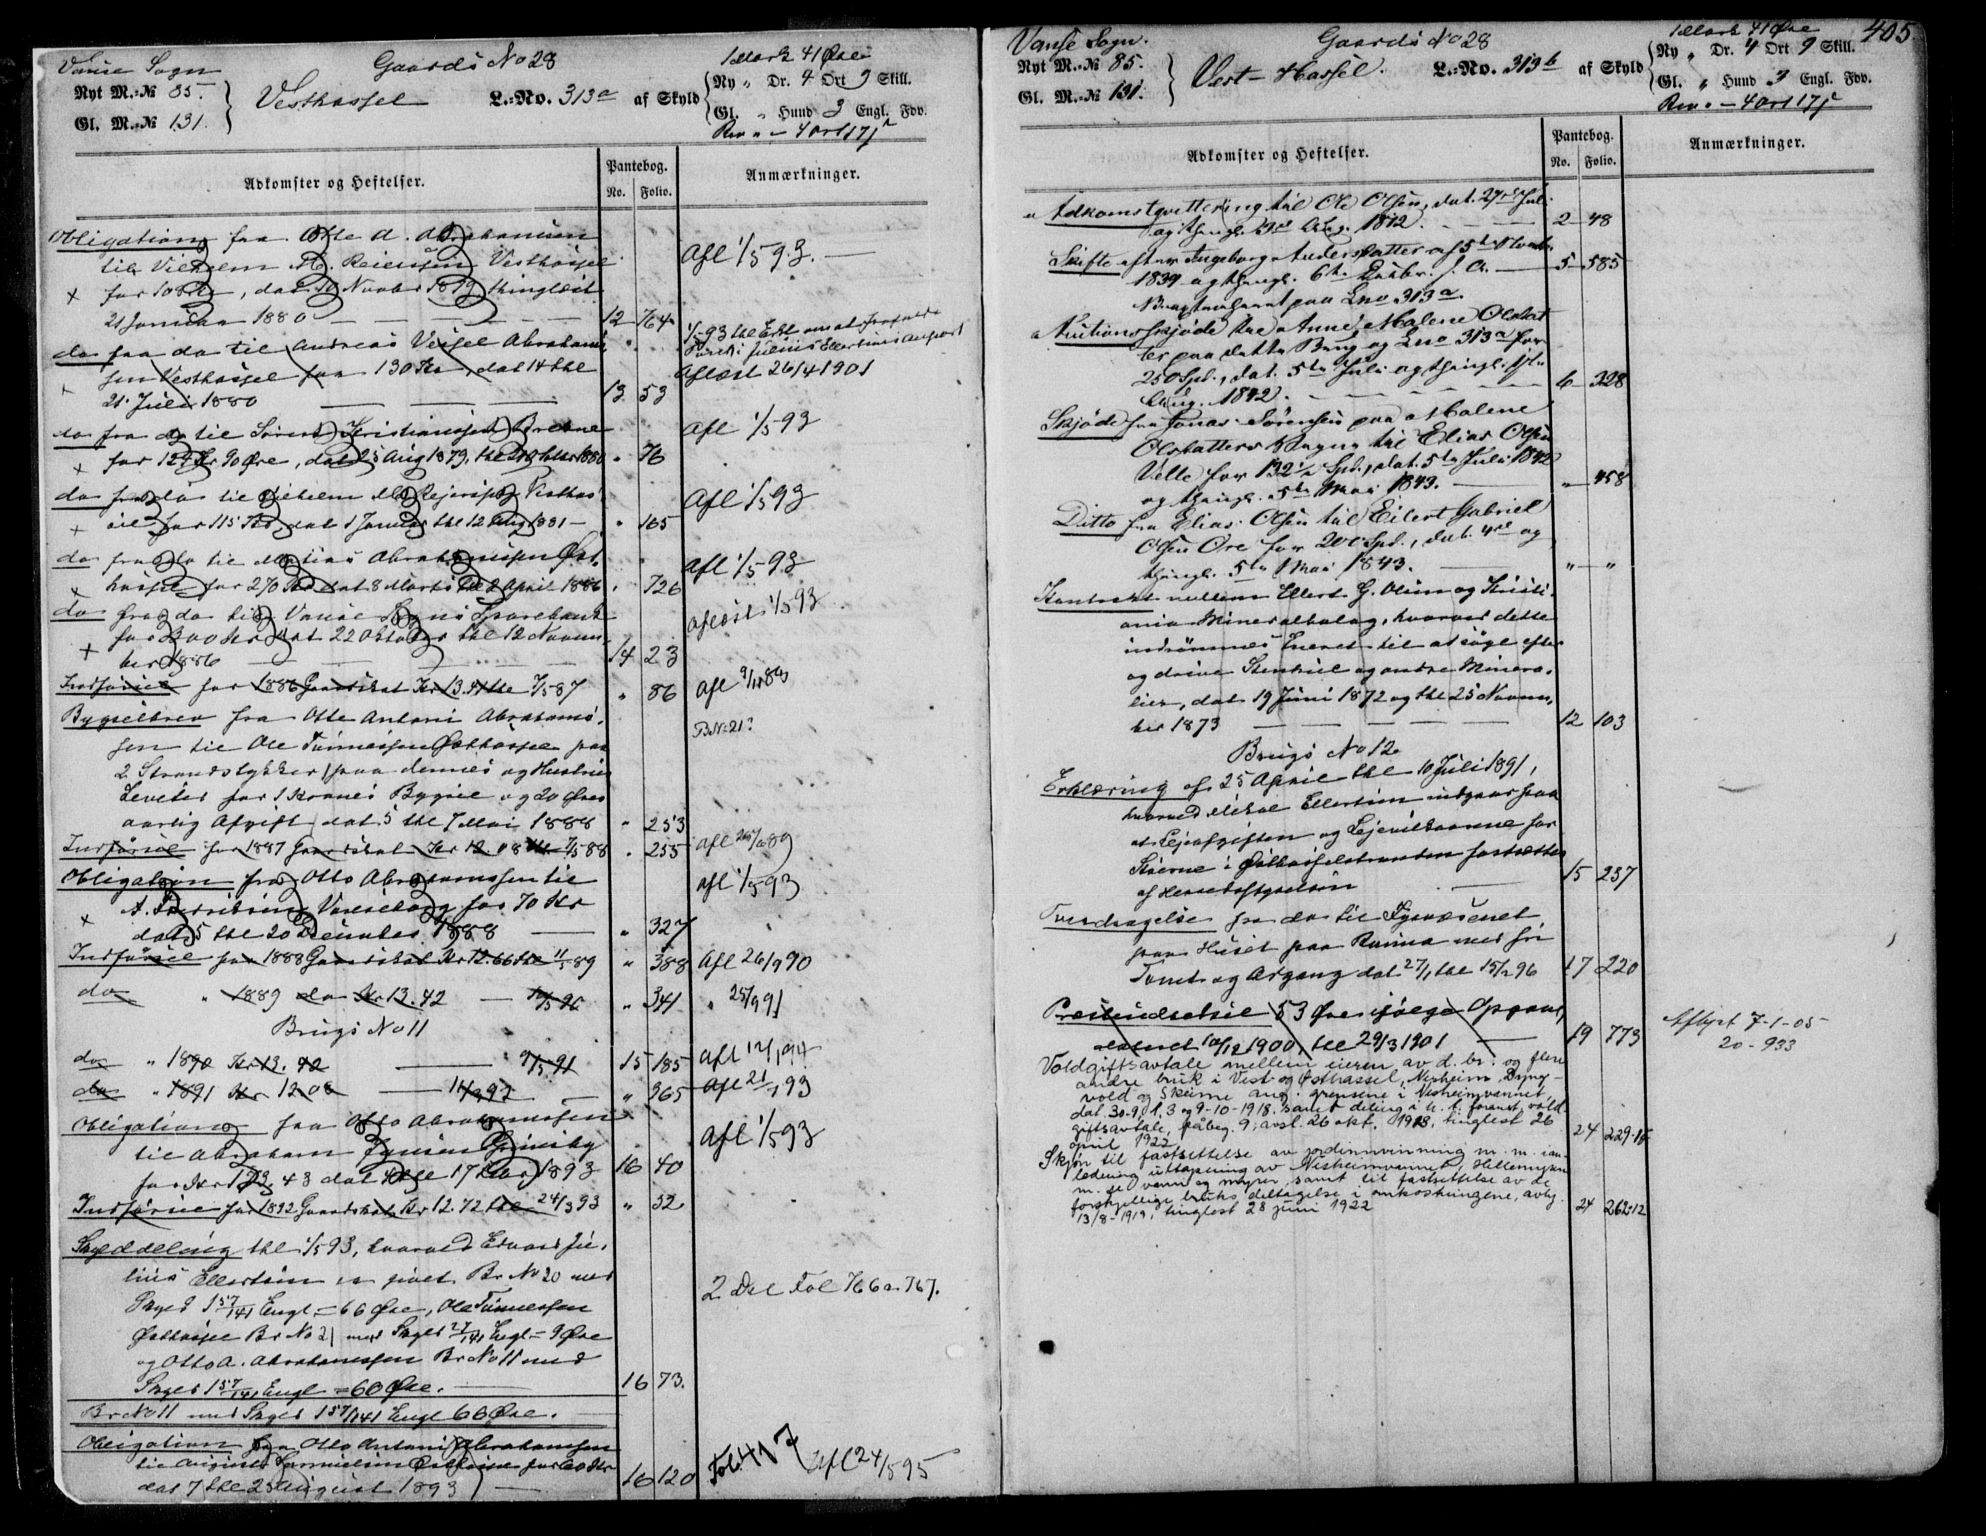 Vanse Sogn
Gaards No 28
1 Mark 41 Øre
Nyt M.-№ 85.
Vesthassel
L.-No. 313a af Skyld
Ny " Dr. 4 Ort 9 Skill.
Gl. M.-№ 131.
Gl. " Hund 3 Engl. Fdv.
Rev " - 4 Ort 17 ß
Adkomster og Heftelser.
Pantebog.
No. Folio.
Anmærkninger.
Obligation fra Otte A. Abrahamsen
til Vilhelm M. Reiersen Vesthassel
for 108 Kr, dat 10 Novbr 1879 thinglæst
21 Januar 1880 12 764
Afl 1/5 93.
do fra do til Andreas Veisel Abraham-
sen Vesthassel for 130 Kr, dat 14 thl
21 Juli 1880 13 53
Aflæst 26/4 1901
do fra do til Søren Kristiansen Brekne
for 127 Kr 90 Øre, dat 5 Aug 1879, thl Oktbr 1880 " 76
Afl 1/5 93
do fra do til Vilhelm M. Rejersen Vesthas-
sel for 115 Kr, dat 1 Januar thl 12 Aug 1881 " 165
Afl 1/5 93
do fra do til Mathias Abrahamsen Øst-
hassel for 270 Kr dat 8 Marts thl 2 April 1886 " 726
Afl 1/5 93
do fra do til Vanse Sogns Sparebank
for 300 Kr dat 22 Oktober thl 12 Novem-
ber 1886 14 23
Aflæst 1/5 93
Indførsel for 1886 Gaardskat Kr 13. thl 7/5 87 " 86
Bygselbrev fra Otte Antoni Abraham-
sen til Ole Tønnessen Østhassel paa
2 Strandstykker paa dennes og Hustrus
Levetid for 1 Krones Bygsel og 20 Øres
aarlig Afgift dat 5 thl 7 Mai 1888 " 253
B.Nr 21?
Indførsel for 1887 Gaardskat Kr 12.08 thl 7/5 88 " 255
Obligation fra Otto Abrahamsen til
A. Fredriksen Vanseborg for 70 Kr
dat 5 thl 20 Decenber 1888 " 327
Afl 1/5 93
Indførsel for 1888 Gaardskat Kr 12.66 thl 11/5 89 " 388
Afl 26/9 90
do " 1889 do Kr 13.42 " 341
" 25/9 91
Brugs No 11
do " 1890 Kr 13. 15 185
do " 1891 Kr 12.08 " 365
Obligation fra Otto Abrahamsen
til Abraham Jensen
for Kr 43 dat thl 17 1893 16 40
Afl 1/5 93
Indførsel for 1892 Gaardskat Kr 12.72 thl 24/3 93 " 52
Skylddeling thl 1/5 93, hvorved Edvard Ju-
lius Ellertsen er givet Br No 20 med
Skyld 1 57/141 Engl = 66 Øre, Ole Tønnessen
Østhassel Br No 21 med Skyld 27/141 Engl = 9 Øre
og Otto A. Abrahamsen Br No 11 med
Skyld 1 57/141 Engl = 60 Øre. 16 73.
2 Del Fol 766 a 767.
Br No 11 med Skyld 1 57/141 Engl 66 Øre.
Obligation fra Otto Antoni Abrahamsen
til August Samuelsen Østhassel for 60 Kr
dat 7 thl 23 August 1893 16 120
Fol. 417
Afl 24/5 95
405
Vanse Sogn.
Gaards No 28
1 Mark 41 Øre
Nyt M.-№ 85.
Vest-Hassel.
L.-No. 313b af Skyld
Ny " Dr. 4 Ort 9 Skill.
Gl. M.-№ 131.
Gl. " Hund 3 Engl. Fdv.
Rev " - 4 Ort 17 ß
Adkomster og Heftelser.
Pantebog.
No. Folio.
Anmærkninger.
" Adkomstqvittering til Ole Olsen, dat. 27de Juli
og thingl. 3die Aug. 1812. 2 48
Skifte efter Ingeborg Andersdatter af 5te Novbr.
1839 og thingl. 6te Decbr. s. A. 5 585
paa Lno 313a.
" Auctionsskjøde til Anne Malene Olsdat-
ter paa dette Brug og Lno 313a for
250 Spd., dat. 5te Juli og thingl.
Aug. 1842. 6 328
Skjøde fra Jonas Sørensen paa Malene
Olsdatters Vegne til Elias Olsen
Velle for 132 1/2 Spd., dat. 5te Juli 1842
og thingl. 5te Mai 1843. " 458
Ditto fra Elias Olsen til Eilert Gabriel
Olsen Ore for 200 Spd., dat. 4de og
thingl. 5te Mai 1843. " "
Kontrakt mellem Ellert G. Olsen og Kristi-
ania Mineralbolag, hvorved dette
indrømmes Eneret til at søge efter
og drive Stenkul og andre Minera-
lier, dat 19 Juni 1872 og thl 25 Novem-
ber 1873 12 103
Brugs No 12
Erklæring af 25 April thl 10 Juli 1891,
hvorved Mikal Ellertsen indgaar paa
at Lejeafgiften og Lejevilkaarene for
Stierne i Østhasselstranden fastsættes
af Herredsstyrelsen 15 237
Overdragelse fra do til Fyrvæsenet
paa Huset paa Rauna med fri
Tomt og Adgang dat 27/1 thl 15/2 96 17 220
Præmindsatsel 53 Øre ifølge Opgave,
dateret 10/12 1900, thl 29/3 1901 19 773
Aflyst 7-1-05
20-933
Voldgiftsavtale mellem eieren av d. br. og flere
andre bruk i Vest og Østhassel, Nesheim, Dyng-
vold og Skeime ang. grensene i Nesheimvannet,
dat 30-9, 1, 3 og 9-10-1918, samt deling i h. t. foranst. vold-
giftsavtale, påbeg. 9, avsl. 26 okt. 1918, tinglest 26
april 1922 24 229-15
Skjøn til fastsettelse av jordinnvinning m. m. i an-
ledning uttapning av Nesheimvannet, Hellemyren
m. fl. vann og myrer, samt til fastsettelse av de
forskjellige bruks deltagelse i omkostningene, avhj.
13/8-1919, tinglest 28 juni 1922 24 262-12